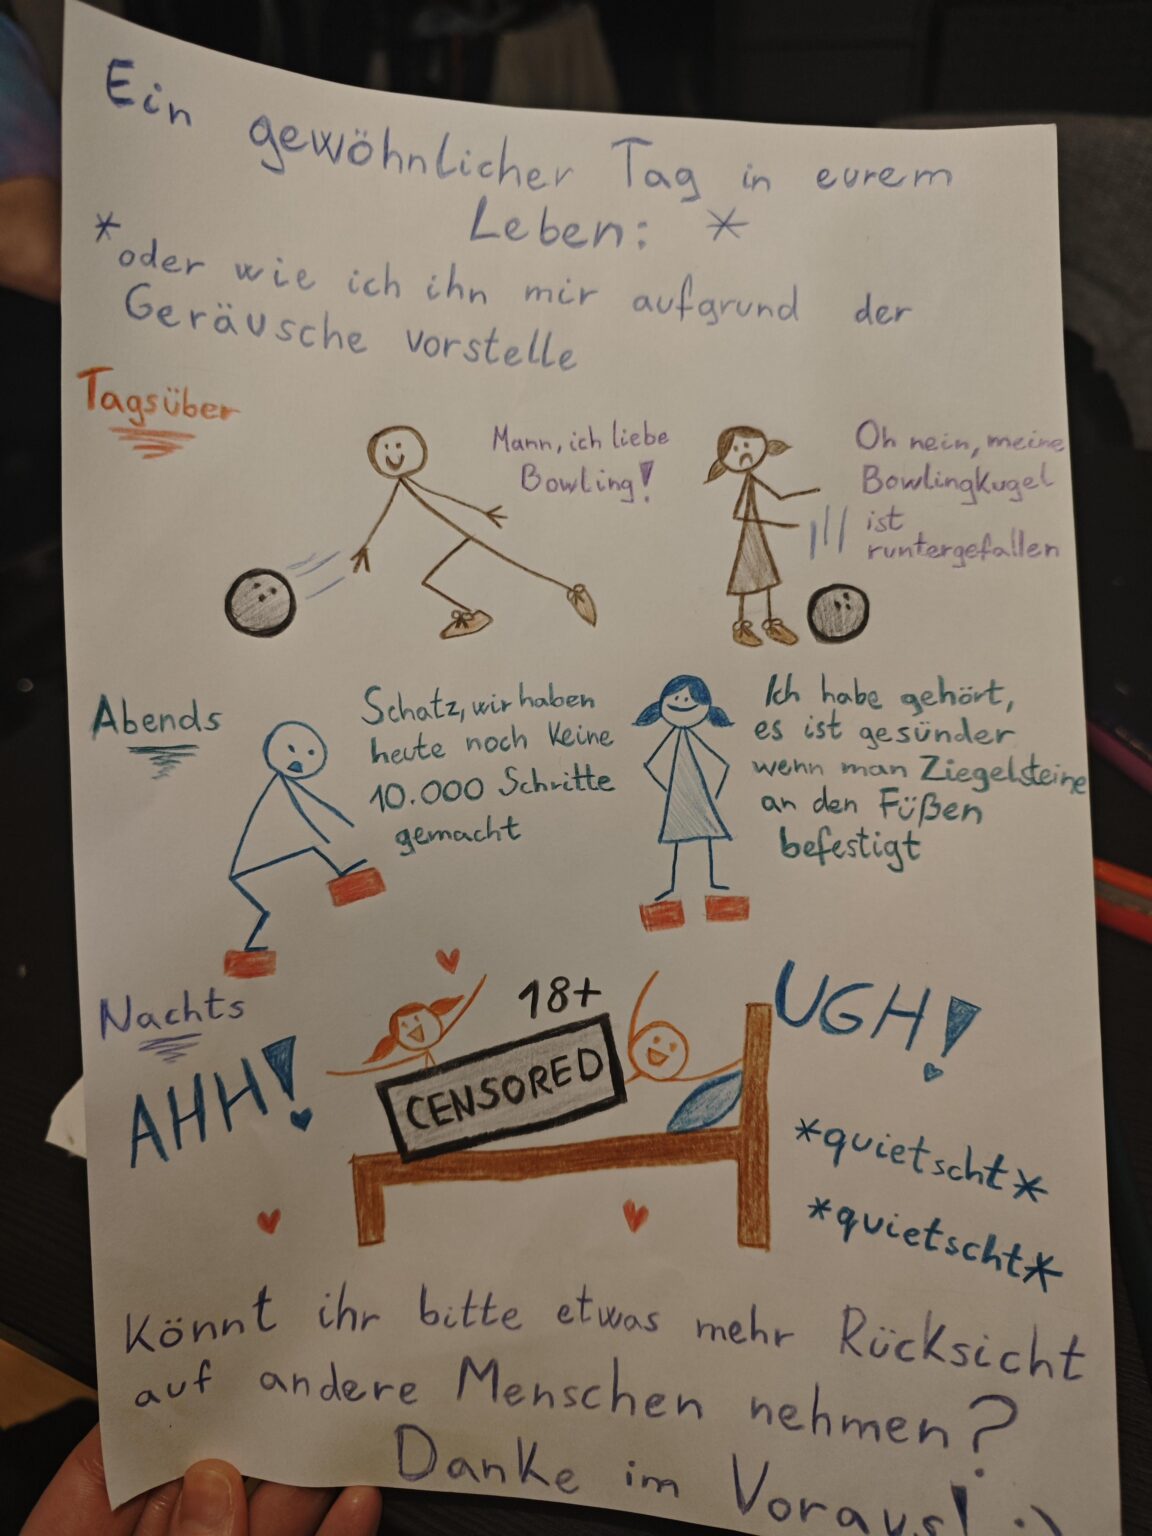 Ein gewöhnlicher Tag in eurem
Leben: *
*oder wie ich ihn mir aufgrund der
Geräusche vorstelle
Tagsüber
Mann, ich liebe
Bowling!
Oh nein, meine
Bowlingkugel
ist
runtergefallen
Abends
Schatz, wir haben
heute noch keine
10.000 Schritte
gemacht
Ich habe gehört,
es ist gesünder
wenn man Ziegelsteine
an den Füßen
befestigt
Nachts
AHH!
18+
CENSORED
UGH!
*quietscht*
*quietscht*
Könnt ihr bitte etwas mehr Rücksicht
auf andere Menschen nehmen?
Danke im Voraus! :)